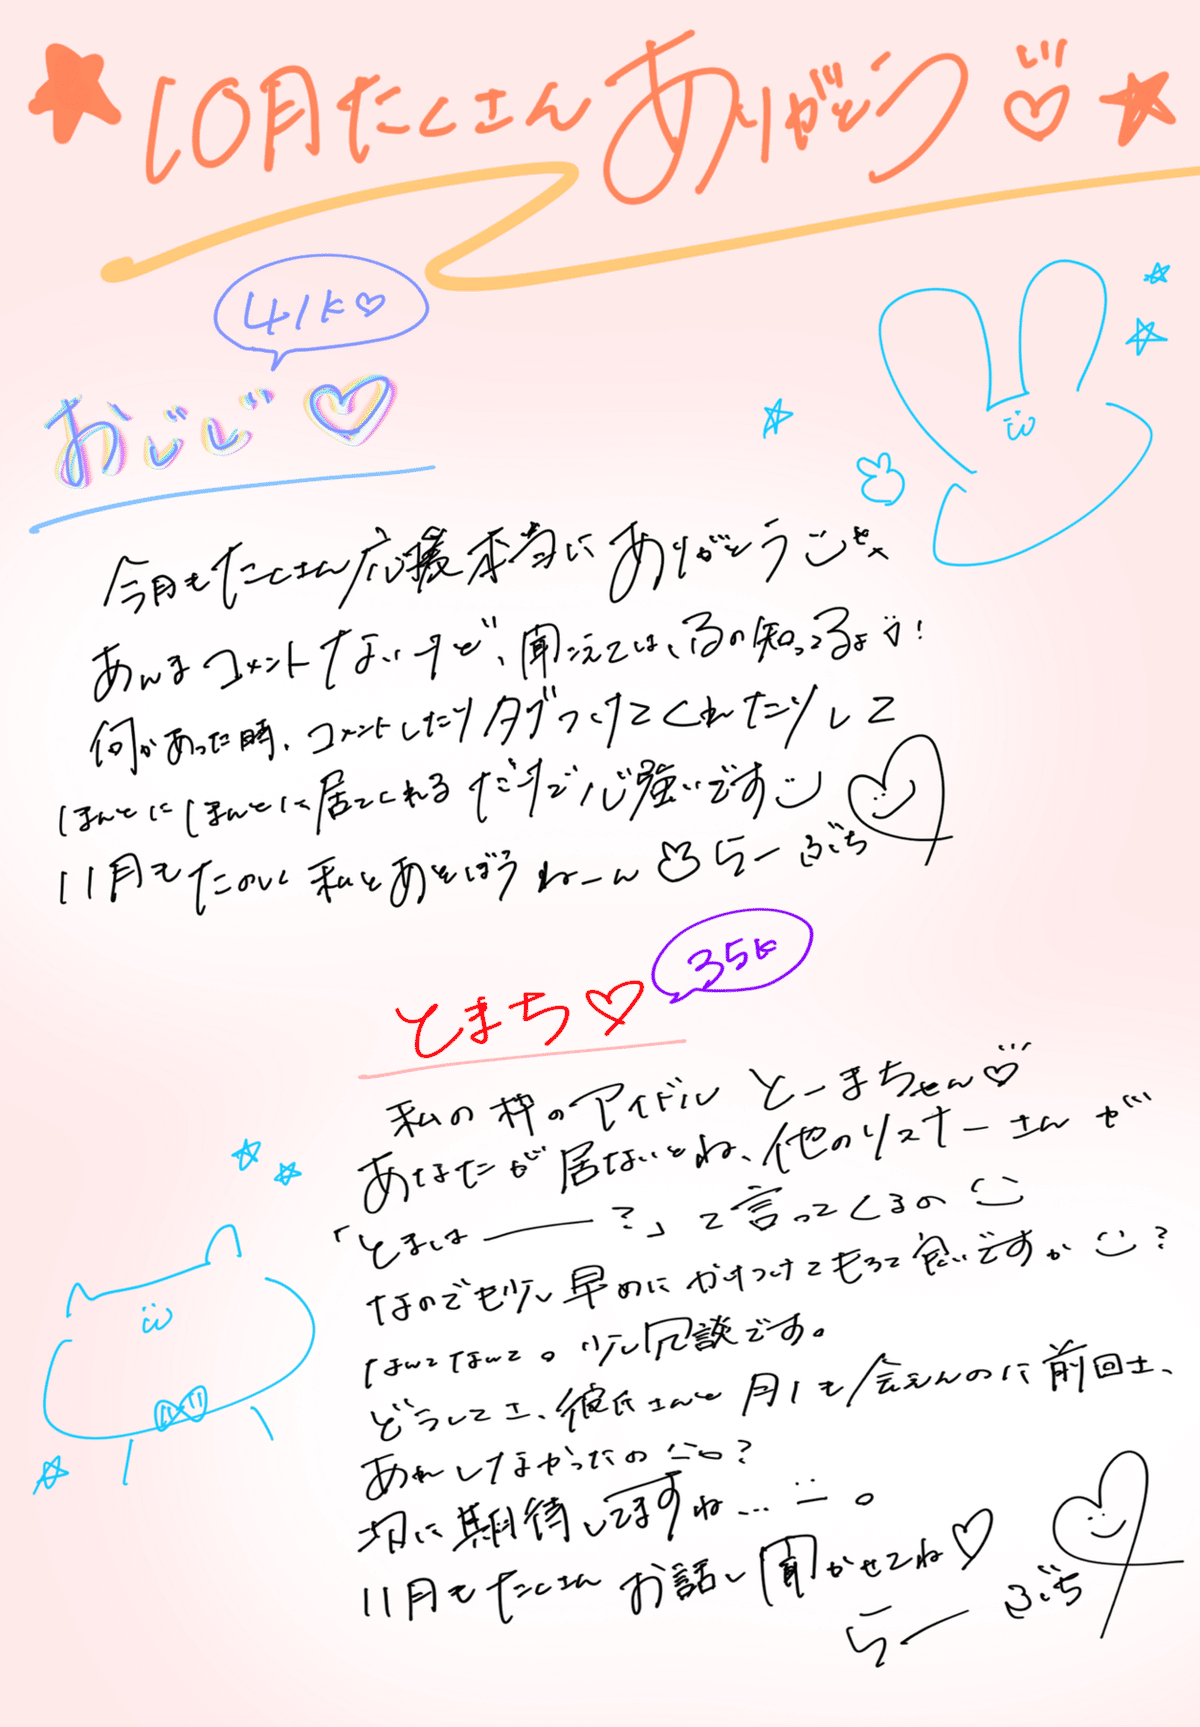 10月たくさんありがとう♡
41k♡
おじじ♡
今月もたくさん応援本当にありがとう
あんまコメントないけど、聞こえてはいるの知ってるよ!
何かあった時、コメントしたりタグつけてくれたりして
ほんとにほんとに居てくれるだけで心強いです
11月もたのしく私とあそぼうねーん らーぶち
35k
とまち♡
私の枠のアイドルとーまちゃん♡
あなたが居ないとね、他のリスナーさんが
「とまは———?」って言ってくるの
なのでも少し早めにかけつけてもろて良いですか?
なんてなんて。少し冗談です。
どうしてさ、彼氏さんと月1も会えんのに前回さ、
あれしなかったの?
次に期待してますね...。
11月もたくさんお話し聞かせてね♡
らーぶち